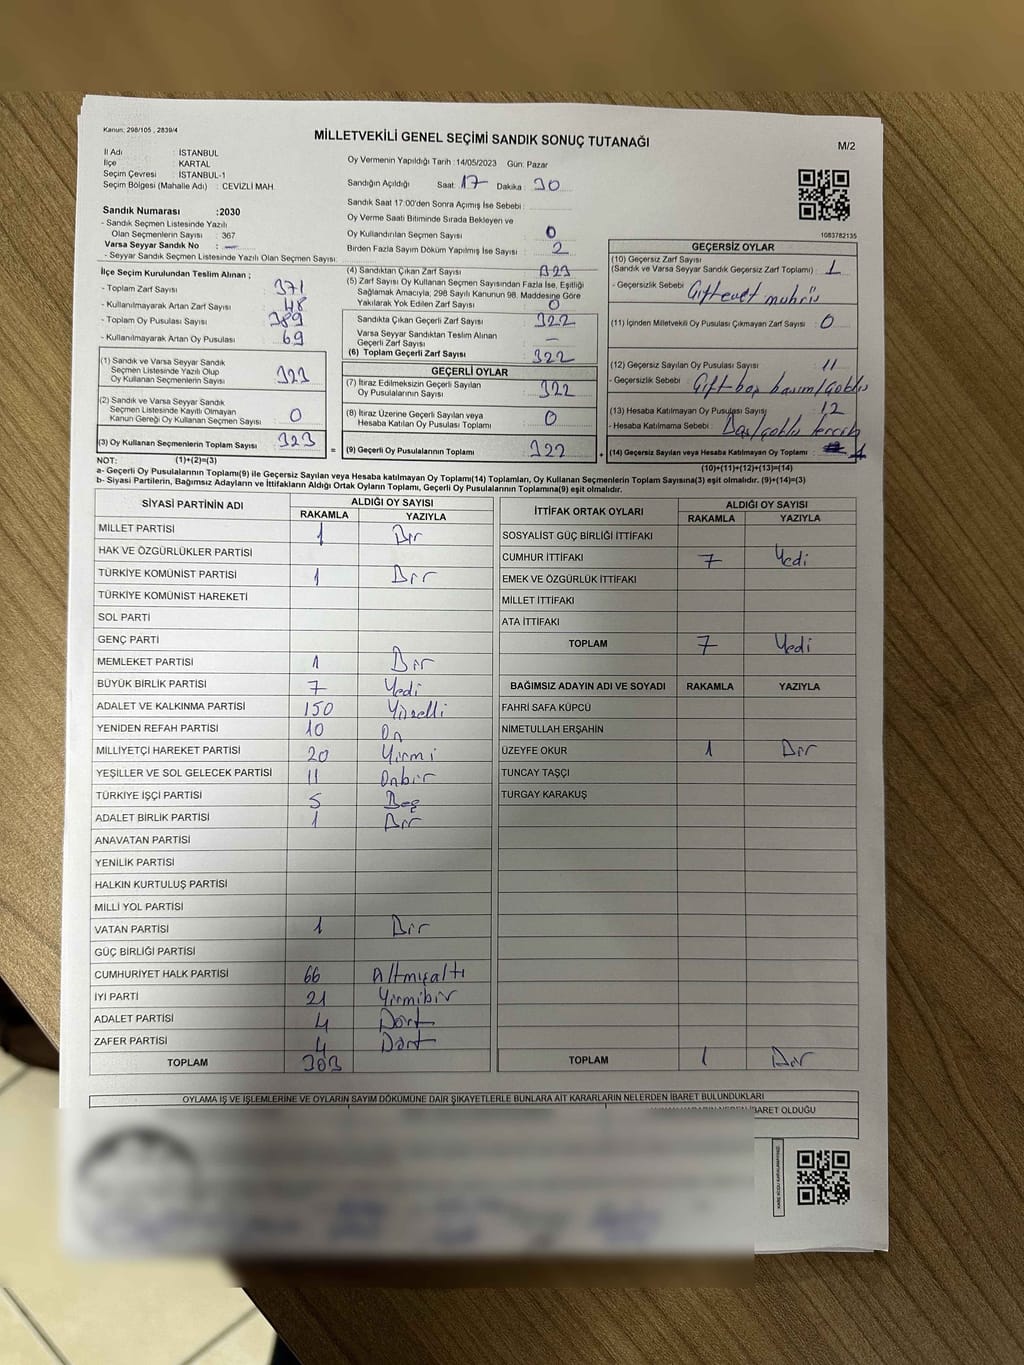 Kanun: 298/105 , 2839/4
MİLLETVEKİLİ GENEL SEÇİMİ SANDIK SONUÇ TUTANAĞI
M/2
İl Adı : İSTANBUL
İlçe : KARTAL
Seçim Çevresi : İSTANBUL-1
Seçim Bölgesi (Mahalle Adı) : CEVİZLİ MAH.
Oy Vermenin Yapıldığı Tarih :14/05/2023 Gün: Pazar
Sandığın Açıldığı Saat: 17 Dakika : 30
Sandık Saat 17:00'den Sonra Açımış İse Sebebi :
Oy Verme Saati Bitiminde Sırada Bekleyen ve
Oy Kullandırılan Seçmen Sayısı : 0
Birden Fazla Sayım Döküm Yapılmış İse Sayısı : 2
1083782135
Sandık Numarası :2030
- Sandık Seçmen Listesinde Yazılı
Olan Seçmenlerin Sayısı : 367
Varsa Seyyar Sandık No : —
- Seyyar Sandık Seçmen Listesinde Yazılı Olan Seçmen Sayısı:
İlçe Seçim Kurulundan Teslim Alınan ;
- Toplam Zarf Sayısı : 371
- Kullanılmayarak Artan Zarf Sayısı : 48
- Toplam Oy Pusulası Sayısı : 389
- Kullanılmayarak Artan Oy Pusulası : 69
(1) Sandık ve Varsa Seyyar Sandık
Seçmen Listesinde Yazılı Olup
Oy Kullanan Seçmenlerin Sayısı : 323
(2) Sandık ve Varsa Seyyar Sandık
Seçmen Listesinde Kayıtlı Olmayan
Kanun Gereği Oy Kullanan Seçmen Sayısı : 0
(3) Oy Kullanan Seçmenlerin Toplam Sayısı : 323
(4) Sandıktan Çıkan Zarf Sayısı : 323
(5) Zarf Sayısı Oy Kullanan Seçmen Sayısından Fazla İse, Eşitliği
Sağlamak Amacıyla, 298 Sayılı Kanunun 98. Maddesine Göre
Yakılarak Yok Edilen Zarf Sayısı : 0
Sandıkta Çıkan Geçerli Zarf Sayısı : 322
Varsa Seyyar Sandıktan Teslim Alınan
Geçerli Zarf Sayısı : —
(6) Toplam Geçerli Zarf Sayısı : 322
GEÇERLİ OYLAR
(7) İtiraz Edilmeksizin Geçerli Sayılan
Oy Pusulalarının Sayısı : 322
(8) İtiraz Üzerine Geçerli Sayılan veya
Hesaba Katılan Oy Pusulası Toplamı : 0
= (9) Geçerli Oy Pusulalarının Toplamı : 322 +
GEÇERSİZ OYLAR
(10) Geçersiz Zarf Sayısı
(Sandık ve Varsa Seyyar Sandık Geçersiz Zarf Toplamı) : 1
- Geçersizlik Sebebi : Çift evet mührü
(11) İçinden Milletvekili Oy Pusulası Çıkmayan Zarf Sayısı : 0
(12) Geçersiz Sayılan Oy Pusulası Sayısı : 11
- Geçersizlik Sebebi : Çift
(13) Hesaba Katılmayan Oy Pusulası Sayısı : 12
- Hesaba Katılmama Sebebi : Boş/çoklu tercih
(14) Geçersiz Sayılan veya Hesaba Katılmayan Oy Toplamı : 1
NOT: (1)+(2)=(3)
(10)+(11)+(12)+(13)=(14)
a- Geçerli Oy Pusulalarının Toplamı(9) ile Geçersiz Sayılan veya Hesaba katılmayan Oy Toplamı(14) Toplamları, Oy Kullanan Seçmenlerin Toplam Sayısına(3) eşit olmalıdır. (9)+(14)=(3)
b- Siyasi Partilerin, Bağımsız Adayların ve İttifakların Aldığı Ortak Oyların Toplamı, Geçerli Oy Pusulalarının Toplamına(9) eşit olmalıdır.
SİYASİ PARTİNİN ADI ALDIĞI OY SAYISI
RAKAMLA YAZIYLA
MİLLET PARTİSİ 1 Bir
HAK VE ÖZGÜRLÜKLER PARTİSİ
TÜRKİYE KOMÜNİST PARTİSİ 1 Bir
TÜRKİYE KOMÜNİST HAREKETİ
SOL PARTİ
GENÇ PARTİ
MEMLEKET PARTİSİ 1 Bir
BÜYÜK BİRLİK PARTİSİ 7 Yedi
ADALET VE KALKINMA PARTİSİ 150 Yüzelli
YENİDEN REFAH PARTİSİ 10 On
MİLLİYETÇİ HAREKET PARTİSİ 20 Yirmi
YEŞİLLER VE SOL GELECEK PARTİSİ 11 Onbir
TÜRKİYE İŞÇİ PARTİSİ 5 Beş
ADALET BİRLİK PARTİSİ 1 Bir
ANAVATAN PARTİSİ
YENİLİK PARTİSİ
HALKIN KURTULUŞ PARTİSİ
MİLLİ YOL PARTİSİ
VATAN PARTİSİ 1 Bir
GÜÇ BİRLİĞİ PARTİSİ
CUMHURİYET HALK PARTİSİ 66 Altmışaltı
İYİ PARTİ 21 Yirmibir
ADALET PARTİSİ 4 Dört
ZAFER PARTİSİ 4 Dört
TOPLAM 303
İTTİFAK ORTAK OYLARI ALDIĞI OY SAYISI
RAKAMLA YAZIYLA
SOSYALİST GÜÇ BİRLİĞİ İTTİFAKI
CUMHUR İTTİFAKI 7 Yedi
EMEK VE ÖZGÜRLÜK İTTİFAKI
MİLLET İTTİFAKI
ATA İTTİFAKI
TOPLAM 7 Yedi
BAĞIMSIZ ADAYIN ADI VE SOYADI RAKAMLA YAZIYLA
FAHRİ SAFA KÜPCÜ
NİMETULLAH ERŞAHİN
ÜZEYFE OKUR 1 Bir
TUNCAY TAŞÇI
TURGAY KARAKUŞ
TOPLAM 1 Bir
OYLAMA İŞ VE İŞLEMLERİNE VE OYLARIN SAYIM DÖKÜMÜNE DAİR ŞİKAYETLERLE BUNLARA AİT KARARLARIN NELERDEN İBARET BULUNDUKLARI
İBARET OLDUĞU